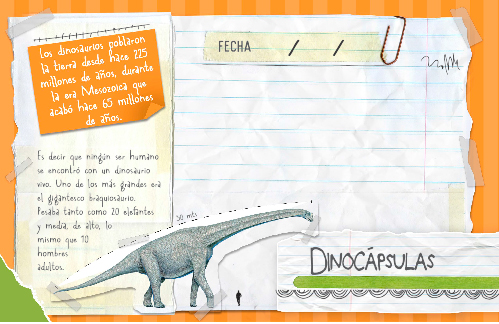 Los dinosaurios poblaron
la tierra desde hace 225
millones de años, durante
la era Mesozoica que
acabó hace 65 millones
de años.
Es decir que ningún ser humano
se encontró con un dinosaurio
vivo. Uno de los más grandes era
el gigantesco braquiosaurio.
Pesaba tanto como 20 elefantes
y medía, de alto, lo
mismo que 10
hombres
adultos.
FECHA / /
30 mts
DINOCÁPSULAS